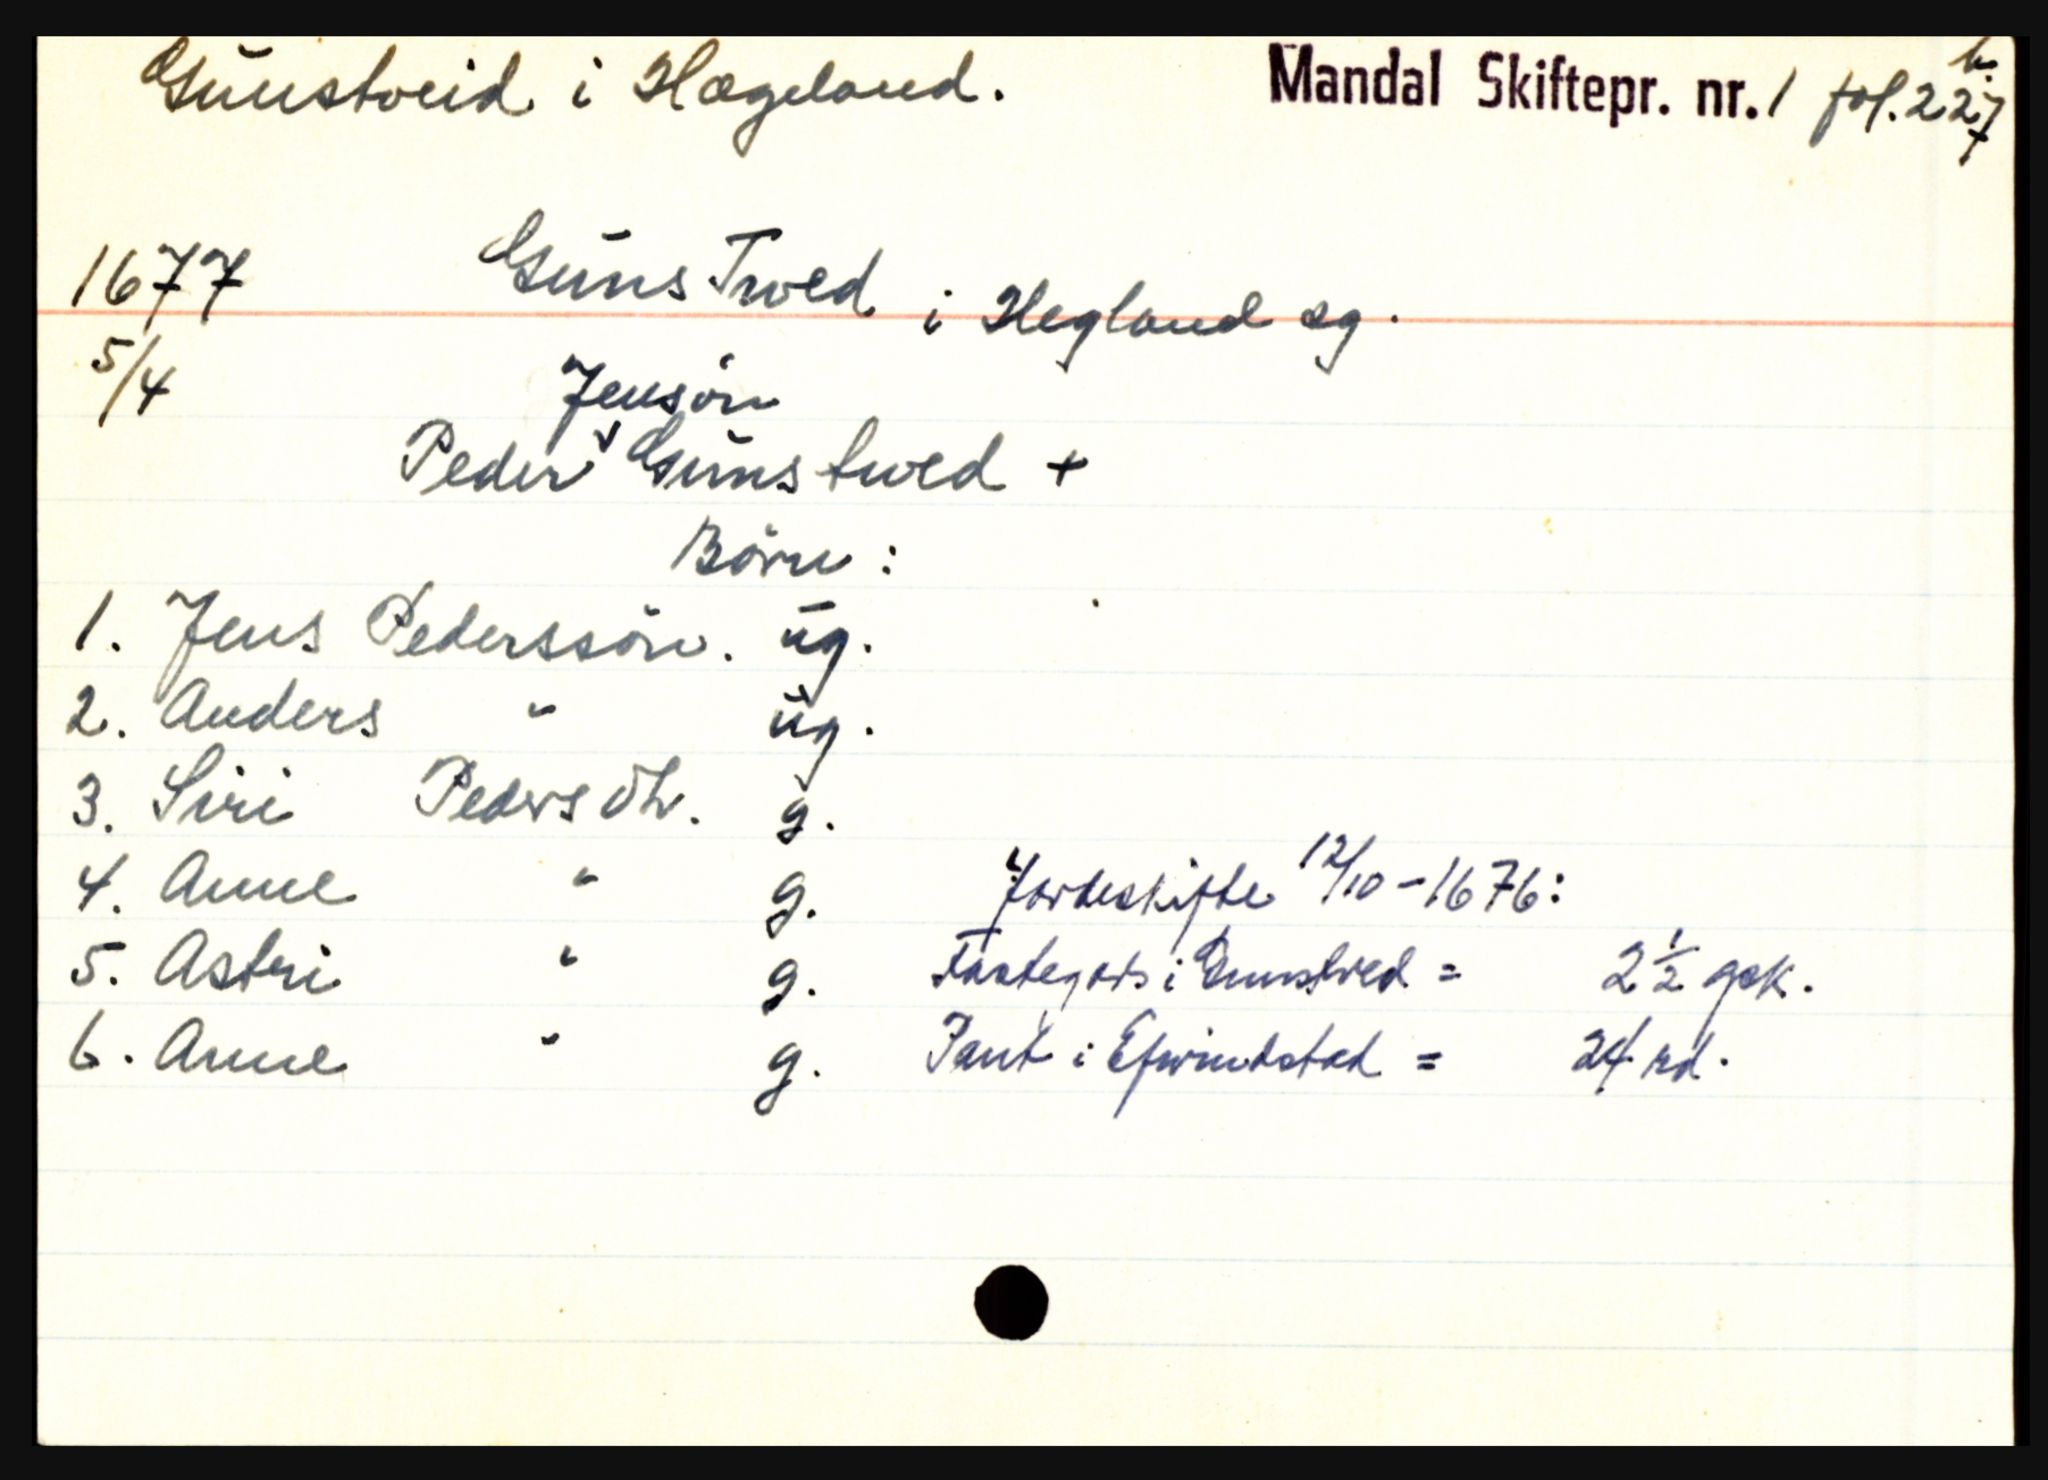 Gunstveid i Hægeland. Mandal Skiftepr. nr. 1 fol. 227 b.
1677 Guns Twed i Hegland sg.
5/4 Jensøn
Peder Gunstwed +
Børn:
1. Jens Pederssøn. ug.
2. Anders " ug.
3. Siri Pedersdtr. g.
4. Anne " g. Jordeskifte 12/10-1676:
5. Astri " g. Fastegods i Gunstved = 2 1/2 gsk.
6. Anne " g. Pant i Efwindstad = 24 rd.